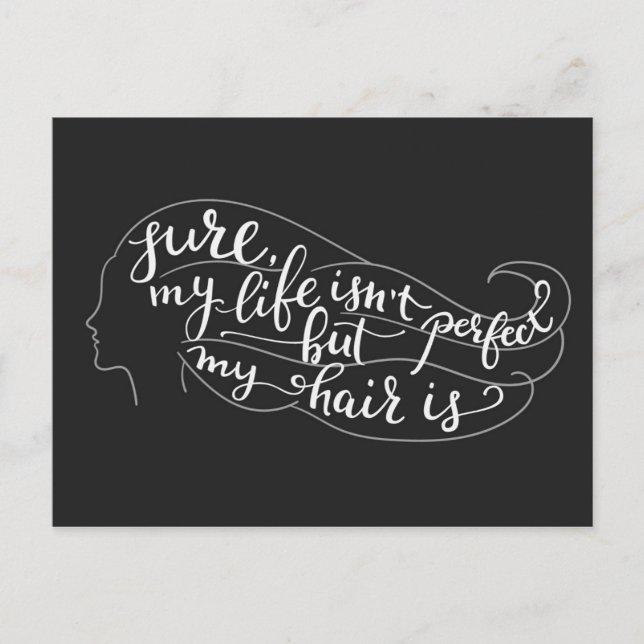 sure,
my life isn't perfect
but
my hair is